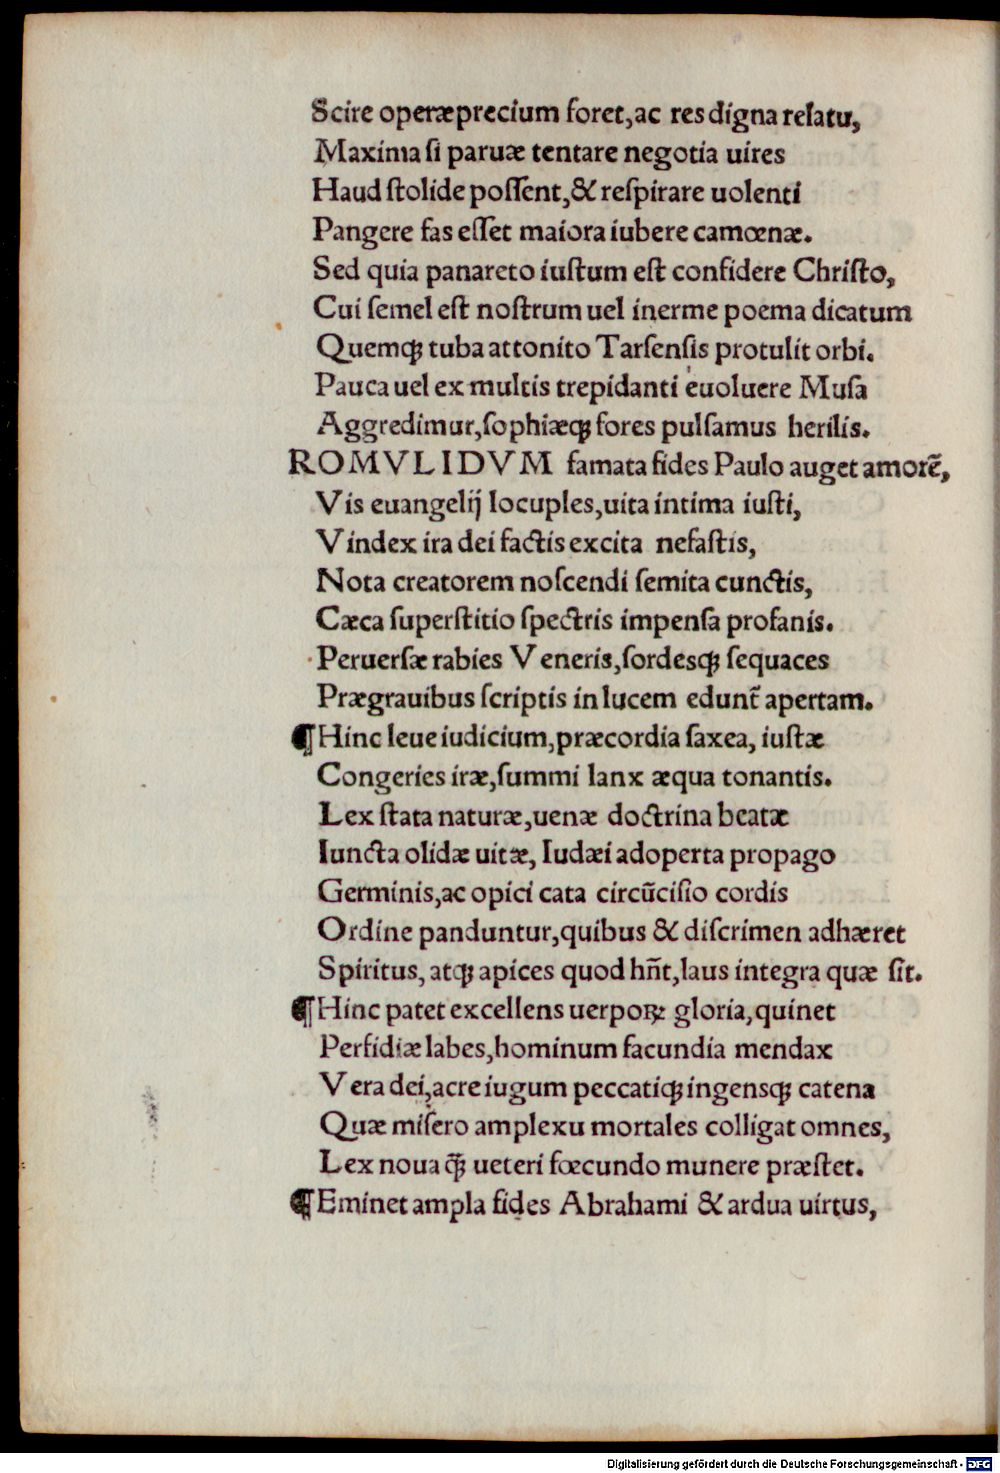 Scire operæprecium foret,ac res digna relatu,
Maxima ſi paruæ tentare negotia uires
Haud ſtolide poſſent,& reſpirare uolenti
Pangere fas eſſet maiora iubere camœnæ.
Sed quia panareto iuſtum eſt confidere Chriſto,
Cui ſemel eſt noſtrum uel inerme poema dicatum
Quemqꝫ tuba attonito Tarſenſis protulit orbi.
Pauca uel ex multis trepidanti euoluere Muſa
Aggredimur,ſophiæqꝫ fores pulſamus herilis.
ROMVLIDVM famata fides Paulo auget amorē,
Vis euangelij locuples,uita intima iuſti,
Vindex ira dei factis excita nefaſtis,
Nota creatorem noſcendi ſemita cunctis,
Cæca ſuperſtitio ſpectris impenſa profanis.
Peruerſæ rabies Veneris,ſordesqꝫ ſequaces
Prægrauibus ſcriptis in lucem edunt̄ apertam.
¶Hinc leue iudicium,præcordia ſaxea, iuſtæ
Congeries iræ,ſummi lanx æqua tonantis.
Lex ſtata naturæ,uenæ doctrina beatæ
Iuncta olidæ uitæ, Iudæi adoperta propago
Germinis,ac opici cata circūciſio cordis
Ordine panduntur,quibus & diſcrimen adhæret
Spiritus, atqꝫ apices quod hn̄t,laus integra quæ ſit.
¶Hinc patet excellens uerpoꝝ gloria,quinet
Perfidiæ labes,hominum facundia mendax
Vera dei,acre iugum peccatiqꝫ ingensqꝫ catena
Quæ miſero amplexu mortales colligat omnes,
Lex noua q̄ꝫ ueteri fœcundo munere præſtet.
¶Eminet ampla fides Abrahami & ardua uirtus,
Digitalisierung gefördert durch die Deutsche Forschungsgemeinschaft - DFG